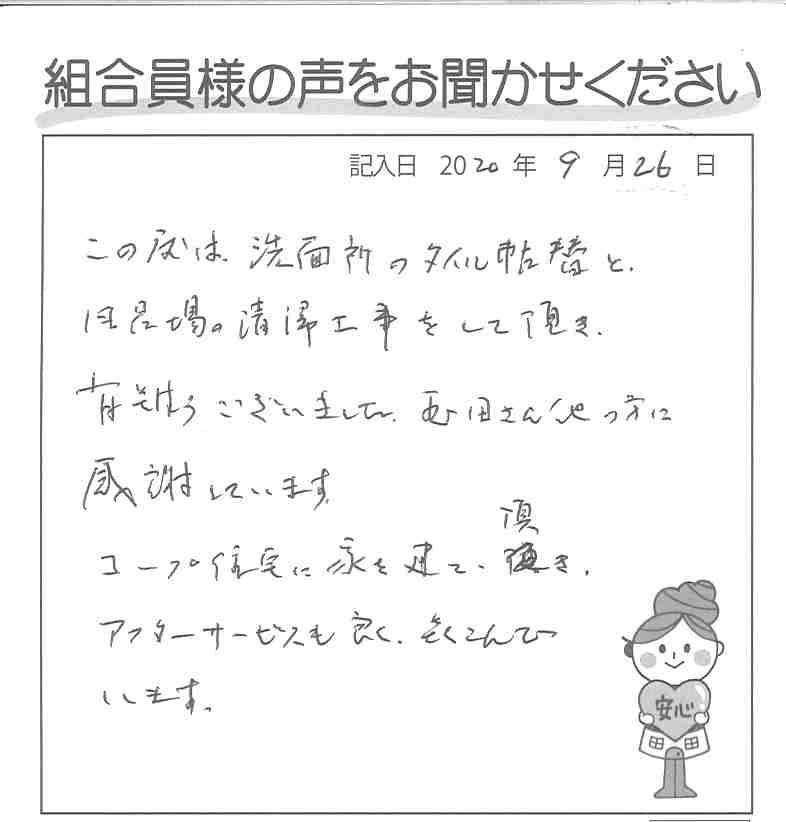 組合員様の声をお聞かせください
記入日 2020 年 9 月 26 日
この度は、洗面所のタイル帖替と、
風呂場の清掃工事をして頂き、
有難う ございました。 田さん他の方に
感謝しています
コープ住宅に家を建て、頂き、
アフターサービスも良く、
います。
安心